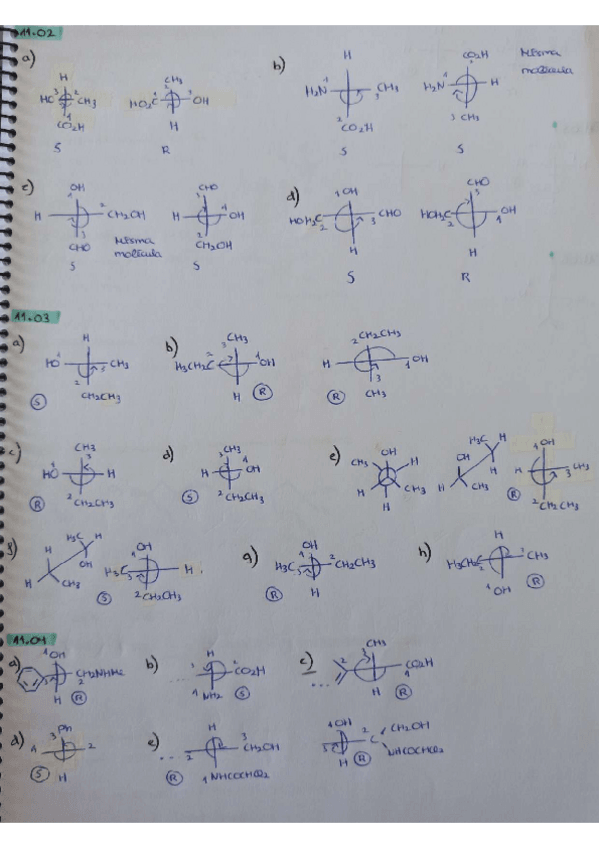 11.02
a)
H
HO 3 2 CH3
1
CO2H
S
CH3
HO2C 1 OH
H
R
b)
H
H2N 1 CH3
3
2
CO2H
S
CO2H
H2N 1 H
3 CH3
S
Misma
molécula
c)
OH
1
H 2 CH2OH
3
CHO
S
Misma
molécula
CHO
3
H 1 OH
2
CH2OH
S
d)
1 OH
HOH3C CHO
2 3
H
S
CHO
3
HOH3C OH
2 1
H
R
11.03
a)
H
HO 1 CH3
3
2
CH2CH3
S
b)
CH3
3
H3CH2C 2 1 OH
H
R
2 CH2CH3
H OH
1
3
CH3
R
c)
CH3
3
HO 1 H
2 CH2CH3
R
d)
3 CH3
H 1 OH
2 CH2CH3
S
e)
OH
CH3 H
H CH3
H
H3C H
OH H
H CH3
R
1 OH
H 3 CH3
2 CH2CH3
f)
H3C H
H OH
H CH3
S
OH
1
H3C 3 H
2 CH2CH3
g)
OH
1
H3C 3 2 CH2CH3
H
R
h)
H
H3CH2C 2 CH3
1 OH
R
11.04
a)
1 OH
3 CH2NHMe
2
H
R
b)
H
... CO2H
1 NH2
S
c)
CH3
3
2
... CO2H
1
H
R
d)
Ph
3
1 2
H
S
e)
H
... 2 3 CH2OH
1 NHCOCHCl2
R
1 OH
2 C CH2OH
3 NHCOCHCl2
H
R